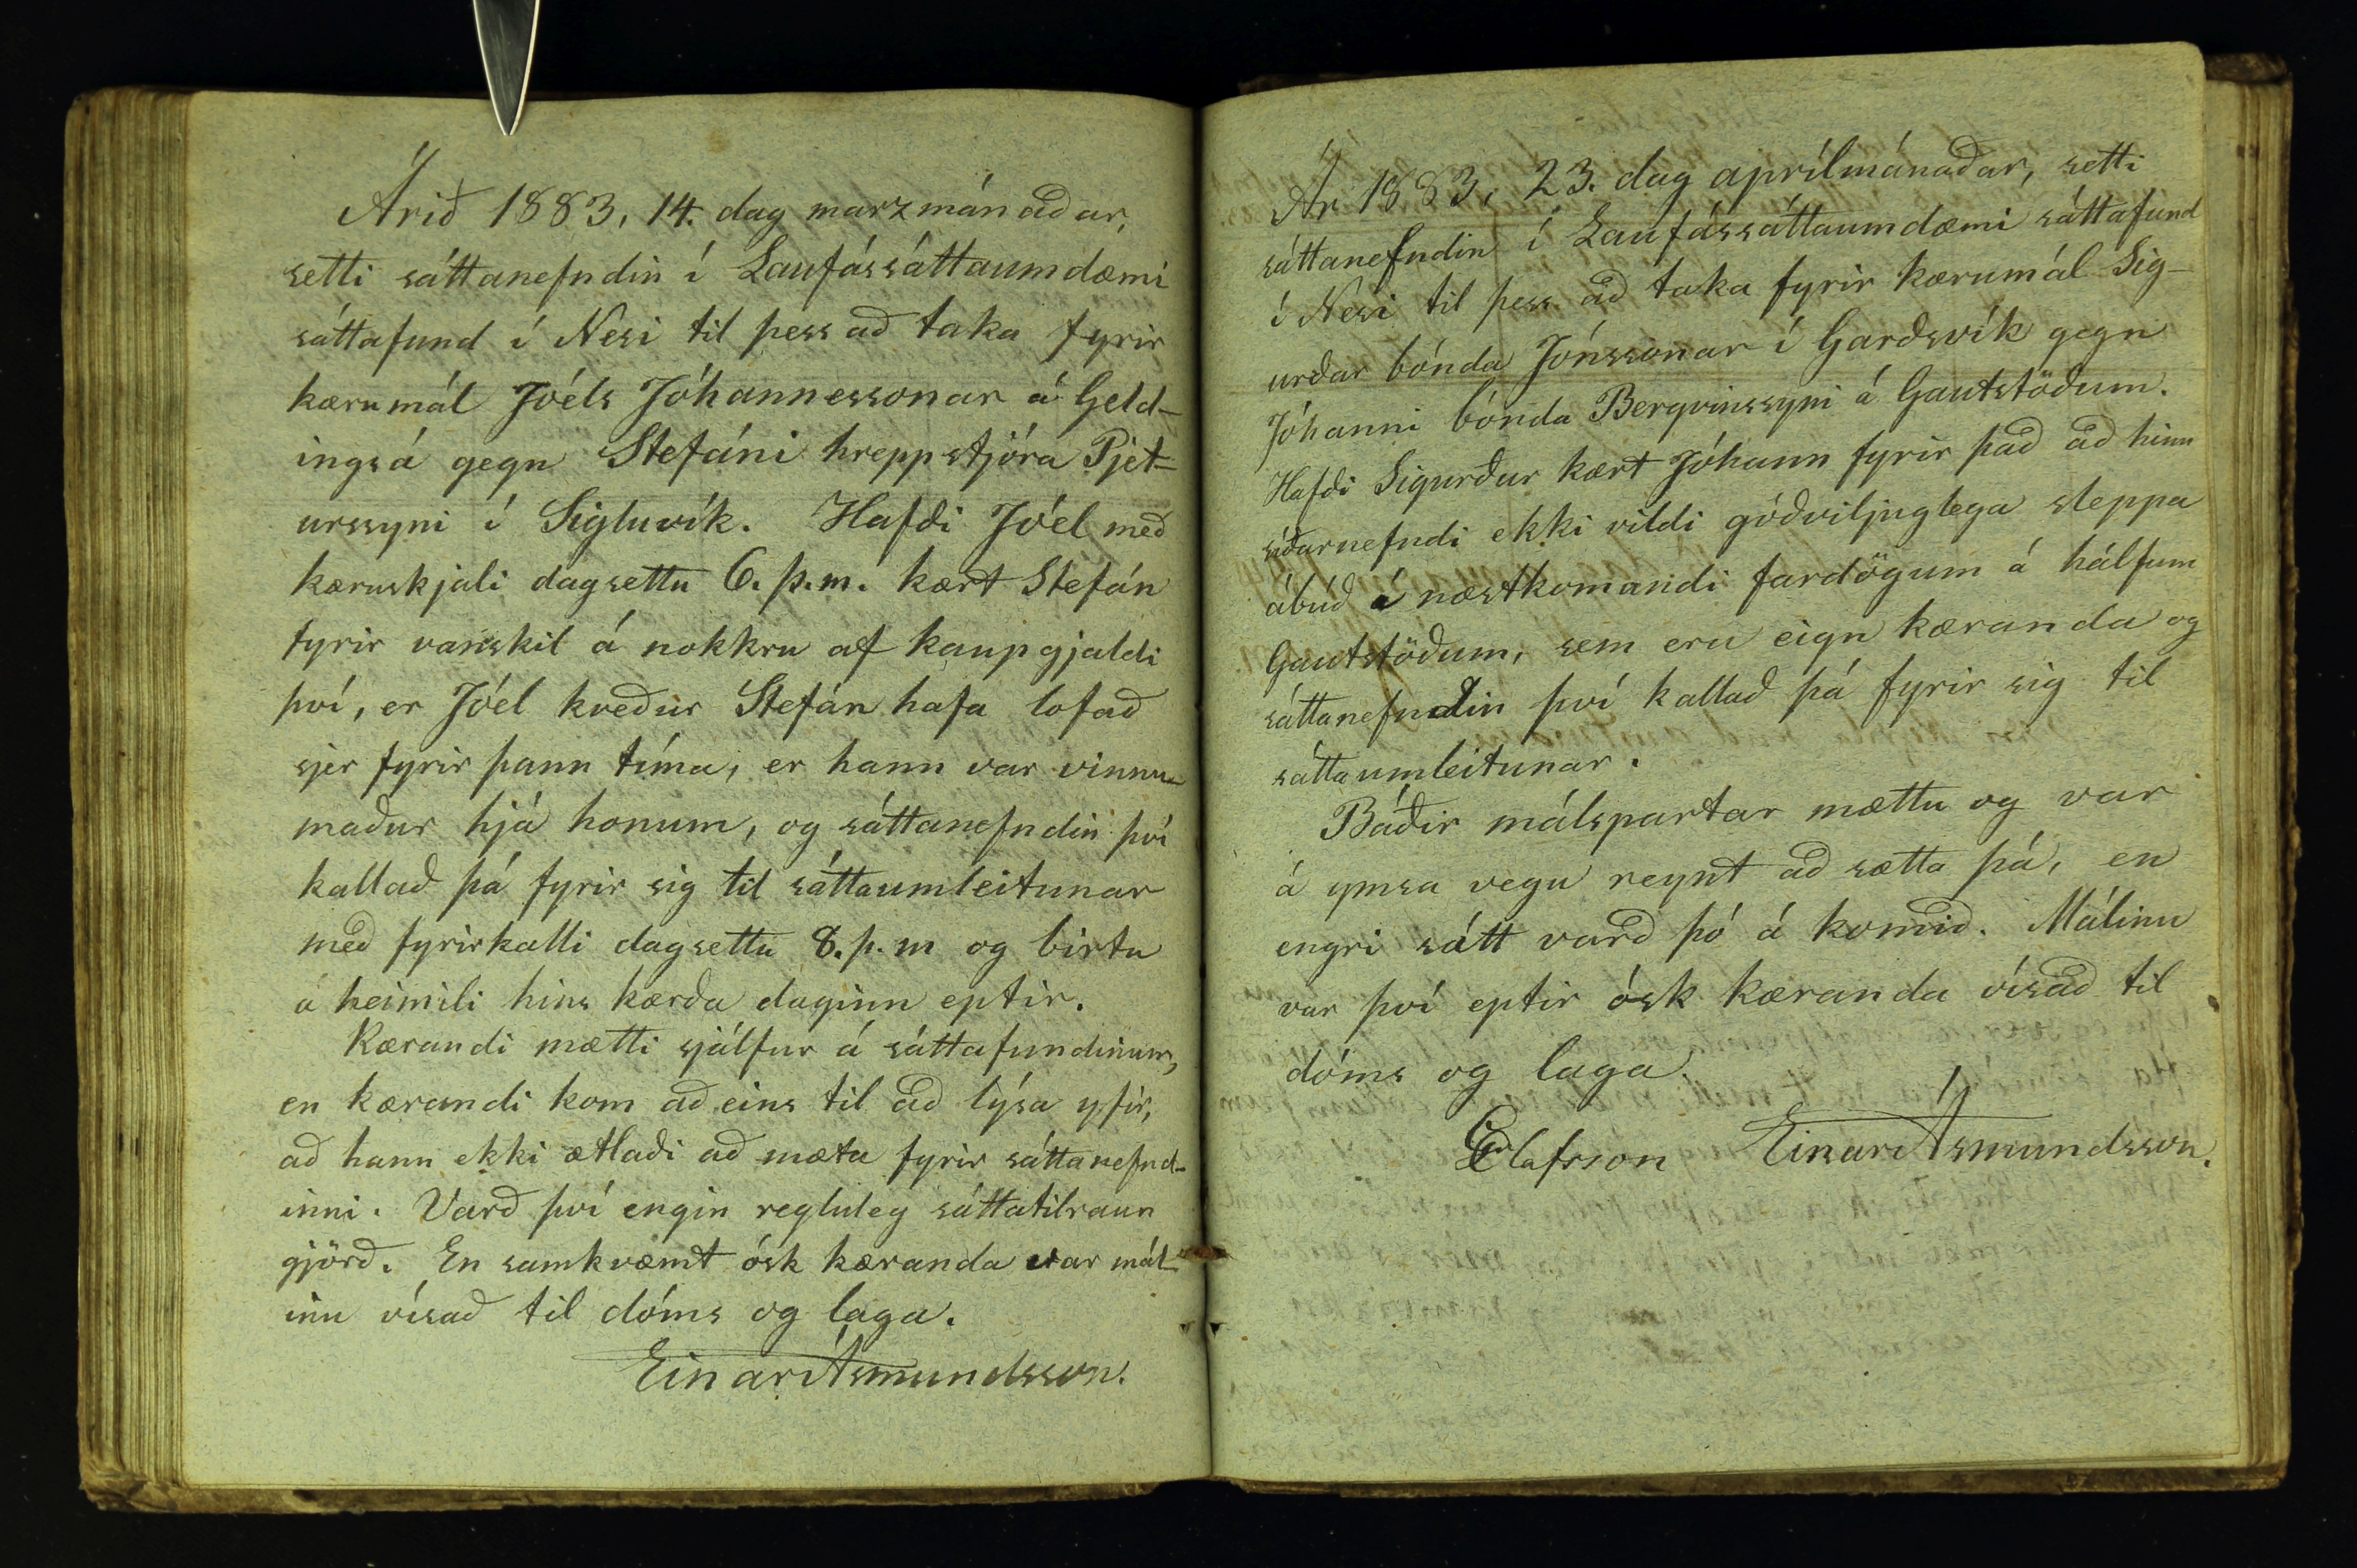 Árið 1883, 14. dag marzmánaðar,
setti sáttanefndin í Laufássáttaumdæmi
sáttafund í Nesi til þess að taka fyrir
kærumál Jóels Jóhannessonar á Geld-
ingsá gegn Stefáni hreppstjóra Pjet-
urssyni í Sigluvík. Hafði Jóel með
kæruskjali dagsettu 6. þ.m. kært Stefán
fyrir vanskil á nokkru af kaupgjaldi
því, er Jóel kveður Stefán hafa lofað
sjer fyrir þann tíma, er hann var vinnu-
maður hjá honum, og sáttanefndin því
kallað þá fyrir sig til sáttaumleitunar
með fyrirkalli dagsettu 8. þ. m og birtu
á heimili hins kærða daginn eptir.
Kærandi mætti sjálfur á sáttafundinum,
en kærandi kom að eins til að lýsa yfir,
að hann ekki ætlaði að mæta fyrir sáttanefnd-
inni. Varð því engin regluleg sáttatilraun
gjörð. En samkvæmt ósk kæranda var mál-
inu vísað til dóms og laga.
Einar Ásmundsson.
Ár 1883, 23. dag aprílmánaðar, setti
sáttanefndin í Laufássáttaumdæmi sáttafund
í Nesi til þess að taka fyrir kærumál Sig-
urðar bónda Jónssonar í Garðsvík gegn
Jóhanni bónda Bergvinssyni á Gautstöðum.
Hafði Sigurður kært Jóhann fyrir það að hinn
síðarnefndi ekki vildi góðviljuglega sleppa
ábúð á næstkomandi fardögum á hálfum
Gautstöðum, sem eru eign kæranda og
sáttanefndin því kallað þá fyrir sig til
sáttaumleitunar.
Báðir málspartar mættu og var
á ymsa vegu reynt að sætta þá, en
engri sátt varð þó á komið. Málinu
var því eptir ósk kæranda vísað til
dóms og laga.
Ólafsson Einar Ásmundsson.